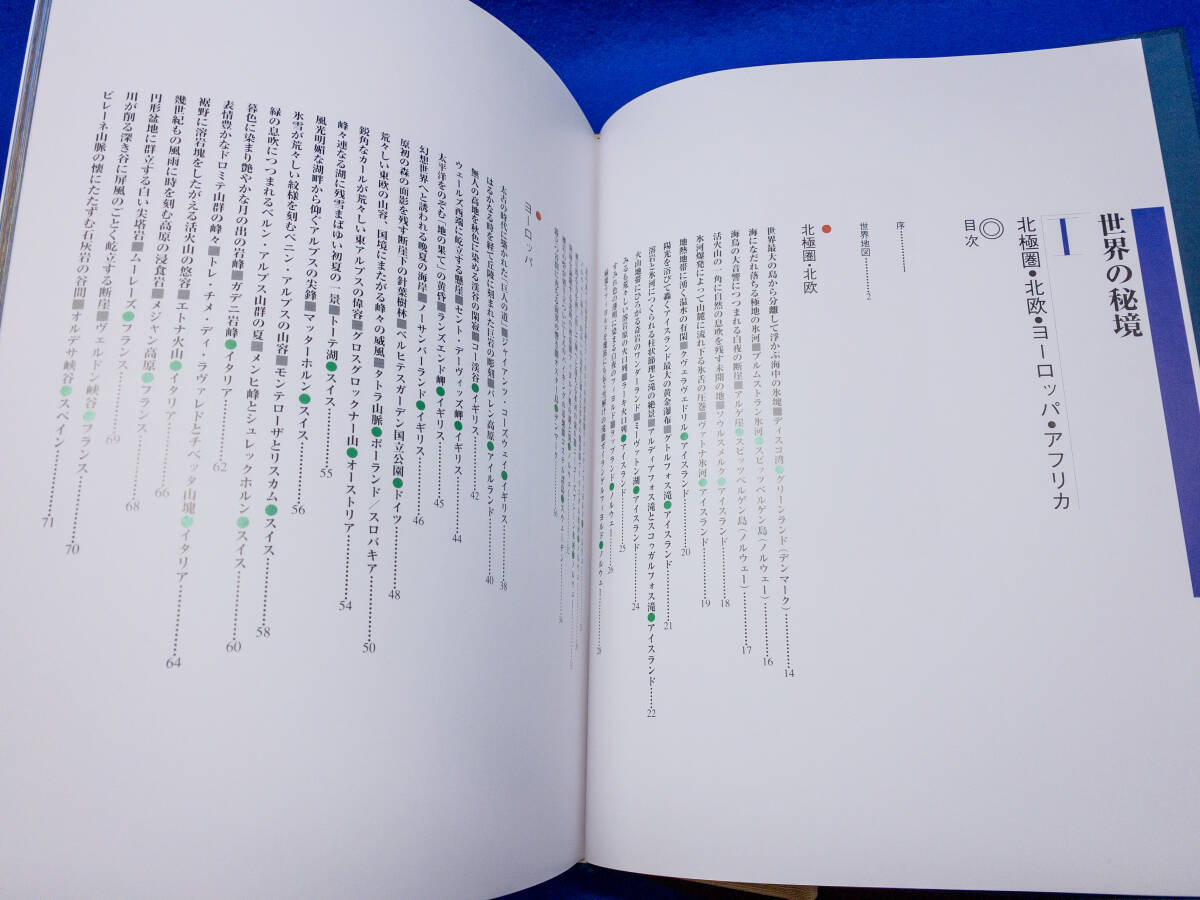 世界の秘境
I
北極圏・北欧・ヨーロッパ・アフリカ
◎
目次
序
世界地図 2
●北極圏・北欧
世界最大の島から分離して浮かぶ海中の氷塊■ディスコ湾●グリーンランド(デンマーク) 14
海になだれ落ちる極地の氷河■ブルムストラン氷河●スピッツベルゲン島(ノルウェー) 16
海鳥の大音響につつまれる白夜の断崖■アルゲ崖●スピッツベルゲン島(ノルウェー) 17
活火山の一角に自然の息吹を残す未開の地■ソウルスメルク●アイスランド 18
氷河爆発によって山麓に流れ下る氷舌の圧巻■ヴァトナ氷河●アイスランド 19
地熱地帯に湧く温水の有閑■クヴェラヴェドリル●アイスランド 20
陽光を浴びて轟くアイスランド最大の黄金瀑布■グトルフォス滝●アイスランド 21
溶岩と氷河につくられる柱状節理と滝の絶景■アルディアフォス滝とスコゥガルフォス滝●アイスランド 22
火山地帯にひろがる奇岩のワンダーランド■ミーヴァトン湖●アイスランド 24
みるも荒々しい溶岩原の火口列■ラーキ火口列●アイスランド 25
●ヨーロッパ
太古の時代に築かれた「巨人の道」■ジャイアンツ・コーズウェイ●イギリス 38
はるかなる時を経て丘陵に刻まれた石灰岩の彫刻■バレン高原●アイルランド 40
無人の高地を秋色に染める渓谷の閑寂■コー渓谷●イギリス 42
ウェールズ西端に屹立する懸崖■セント・デーヴィッズ岬●イギリス 44
太平洋をのぞむ「地の果て」の黄昏■ランズエンド岬●イギリス 45
幻想世界へと誘われる晩夏の海岸■ノーサンバーランド●イギリス 46
原初の森の面影を残す断崖下の針葉樹林■ベルヒテスガーデン国立公園●ドイツ 48
荒々しい東欧の山容、国境にまたがる峰々の威風■タトラ山脈●ポーランド/スロバキア 50
鋭角なカールが荒々しい東アルプスの偉容■グロスグロックナー山●オーストリア 54
峰々連なる湖に残雪まばゆい初夏の一景■トーテ湖●スイス 55
風光明媚な湖畔から仰ぐアルプスの尖鋒■マッターホルン●スイス 56
氷雪が荒々しい紋様を刻むペニン・アルプスの山容■モンテローザとリスカム●スイス 58
緑の息吹につつまれるベルン・アルプス山群の夏■メンヒ峰とシュレックホルン●スイス 60
暮色に染まり艶やかな月の出の岩峰■ガデニ岩峰●イタリア 62
表情豊かなドロミテ山群の峰々■トレ・チメ・ディ・ラヴァレドとチベッタ山塊●イタリア 64
裾野に溶岩塊をしたがえる活火山の悠容■エトナ火山●イタリア 66
幾世紀もの風雨に時を刻む高原の浸食岩■メジャン高原●フランス 68
円形盆地に群立する白い尖塔岩■ムーレーズ●フランス 69
川が削る深き谷に屏風のごとく屹立する断崖■ヴェルドン峡谷●フランス 70
ピレーネ山脈の懐にたたずむ石灰岩の谷間■オルデサ峡谷●スペイン 71